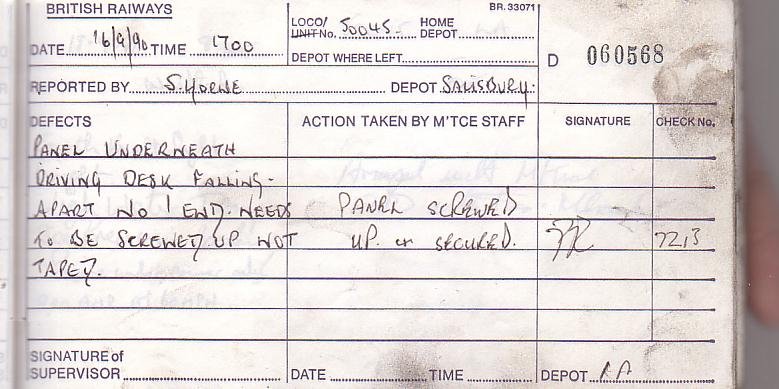 BRITISH RAILWAYS
BR. 33071
LOCO/ UNIT No. 50045. HOME DEPOT
DATE 16/9/90 TIME 1700
DEPOT WHERE LEFT
D 060568
REPORTED BY S. HORNE DEPOT SALISBURY.
DEFECTS ACTION TAKEN BY M'TCE STAFF SIGNATURE CHECK No.
PANEL UNDERNEATH
DRIVING DESK FALLING
APART NO 1 END. NEEDS PANEL SCREWED
TO BE SCREWED UP NOT UP. & SECURED. 7213
TAPED.
SIGNATURE of
SUPERVISOR DATE TIME DEPOT LA